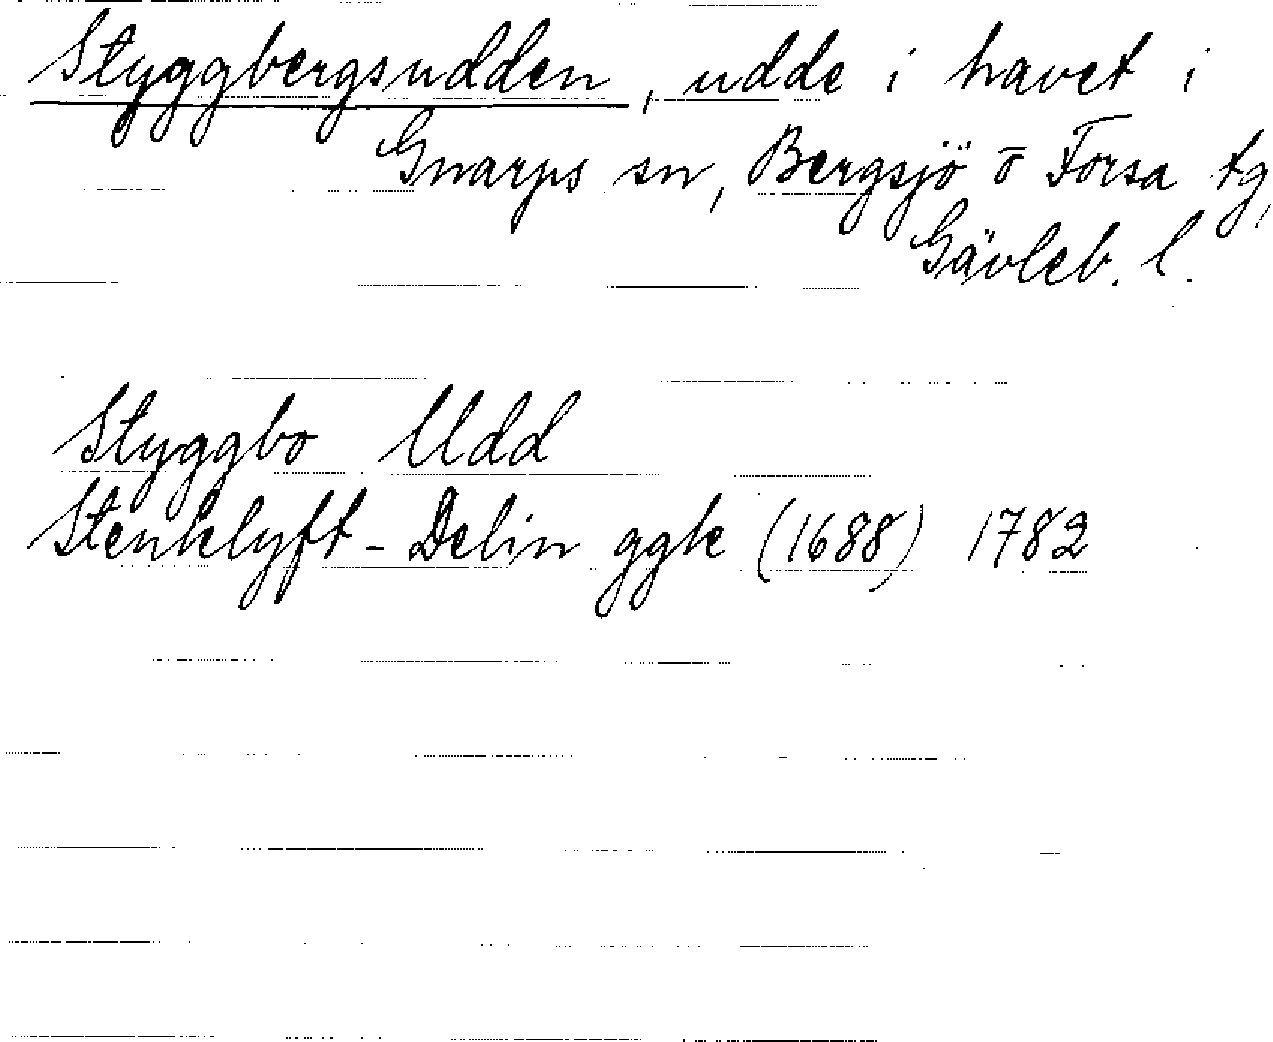 Styggbergsudden, udde i havet i
Gnarps sn, Bergsjö o Forsa tg,
Gävleb. l.
Styggbo Udd
Stenklyft-Delin ggk (1688) 1782